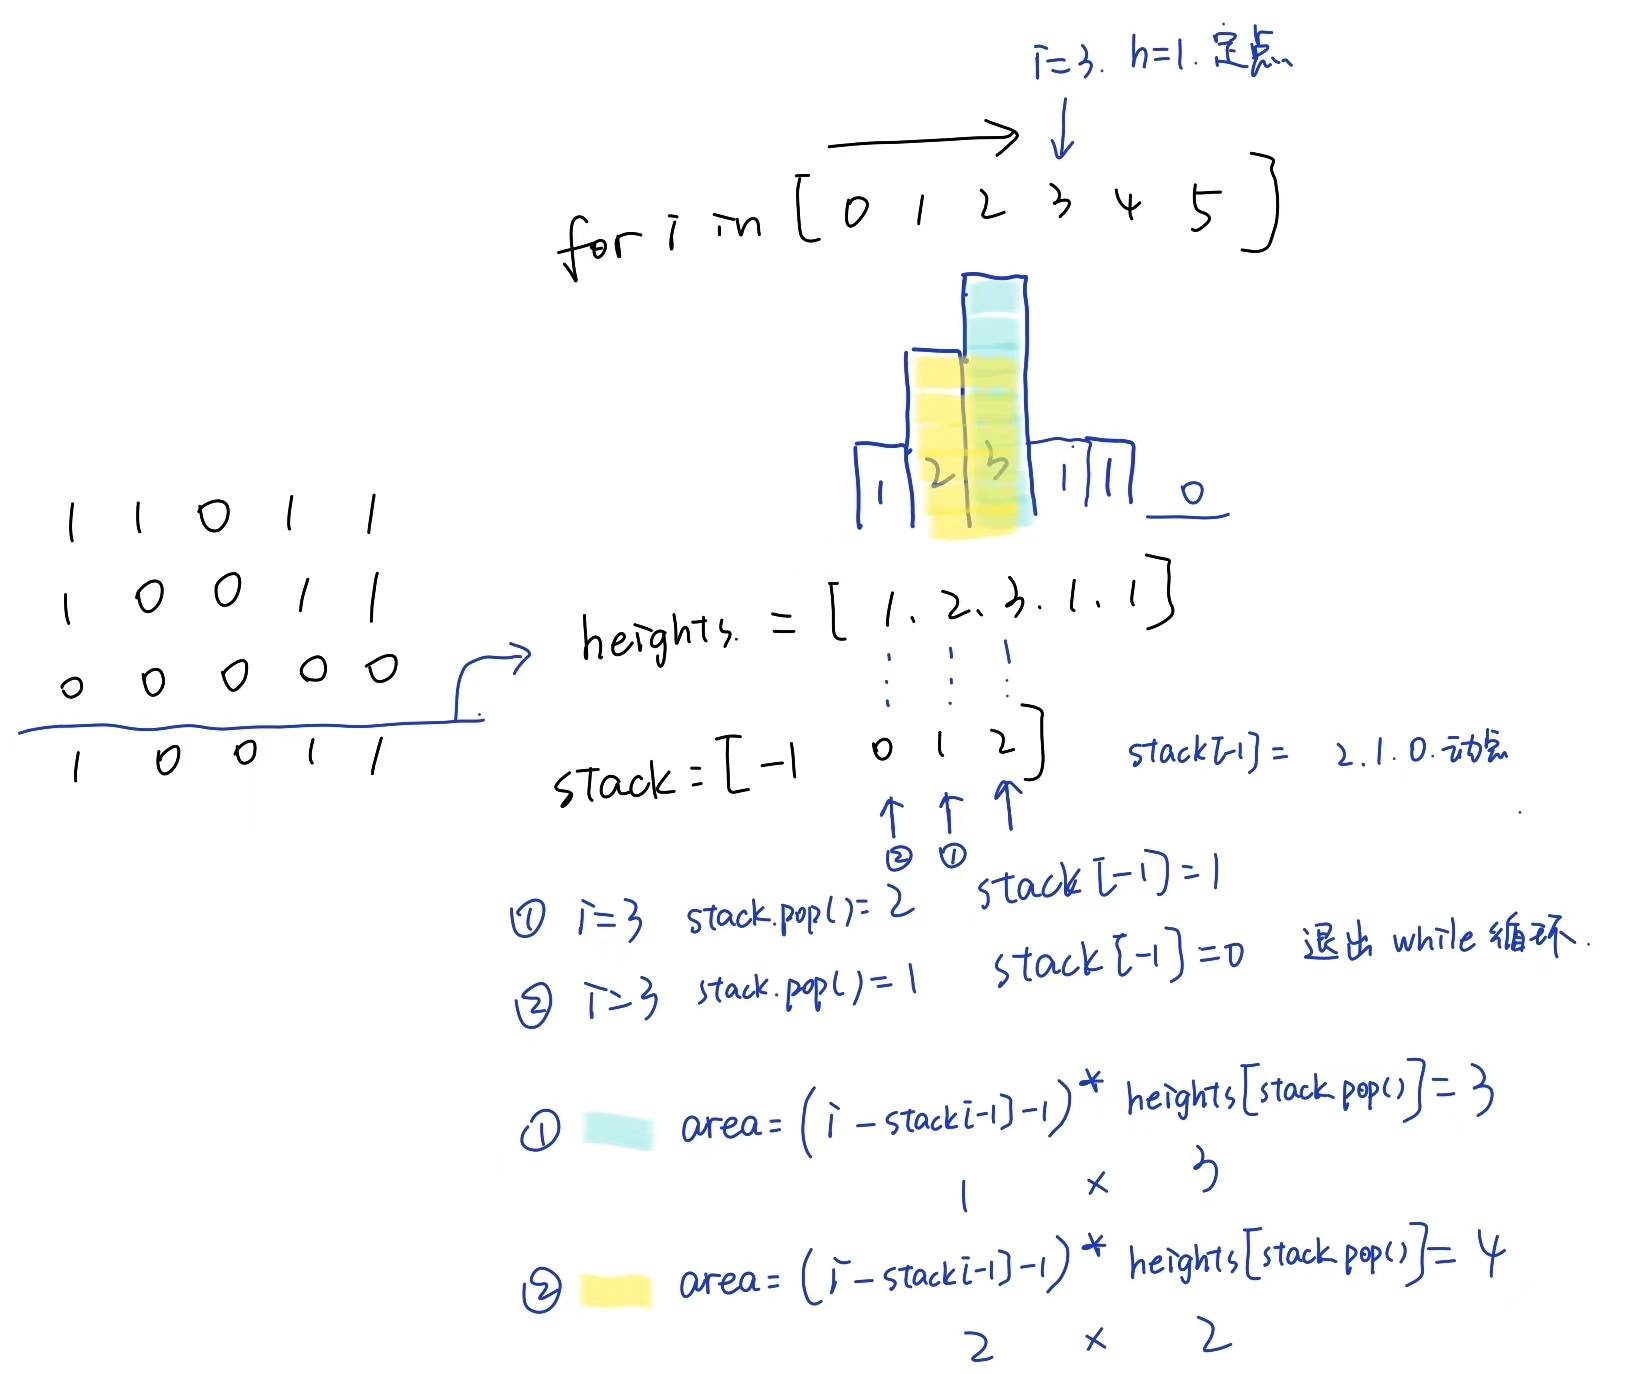 i=3. h=1. 定点
for i in [ 0 1 2 3 4 5 ]
1 2 3 1 1 0
1 1 0 1 1
1 0 0 1 1
0 0 0 0 0
1 0 0 1 1
heights. = [ 1. 2. 3. 1. 1 ]
stack = [ -1 0 1 2 ]
stack[-1] = 2. 1. 0. 动点
② ①
① i=3 stack.pop()= 2 stack[-1]=1
② i=3 stack.pop()=1 stack[-1]=0 退出 while 循环.
① area= (i - stack[-1]-1)* heights[stack.pop()]= 3
1 × 3
② area= (i - stack[-1]-1)* heights[stack.pop()]= 4
2 × 2